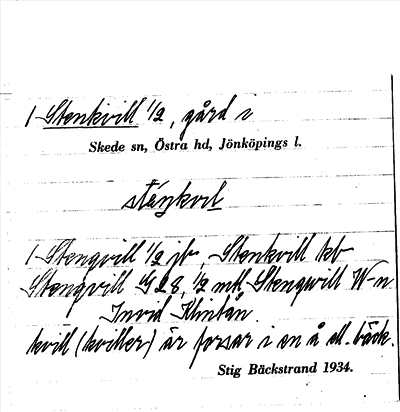 / Stenkvill 1/2, gård i
Skede sn, Östra hd, Jönköpings l.
/ Stenqvill 1/2 jb Stenkvill kb
Stenqvill G 28 1/2 mtl Stenqwill W-n
Invid Klintån.
kvill (kviller) är forsar i en å el. bäck.
Stig Bäckstrand 1934.